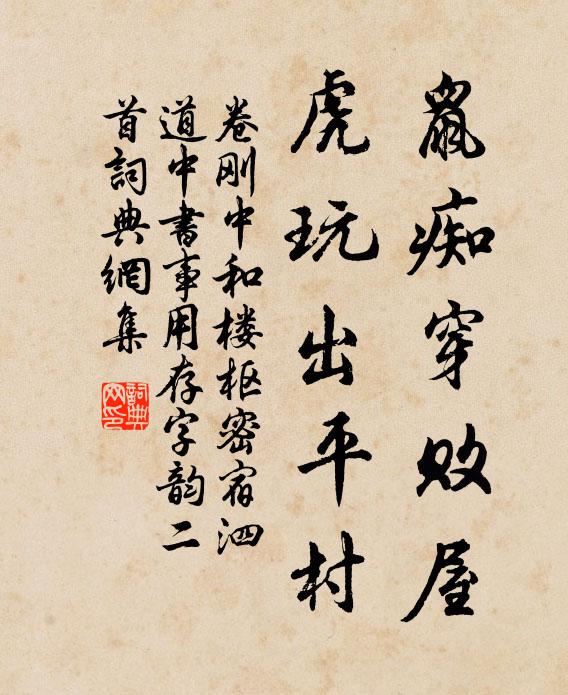 鼠痴穿败屋
虎玩出平村
卷刚中和楼枢密宿泗
道中书事用存字韵二
首词典网集
詞典網印